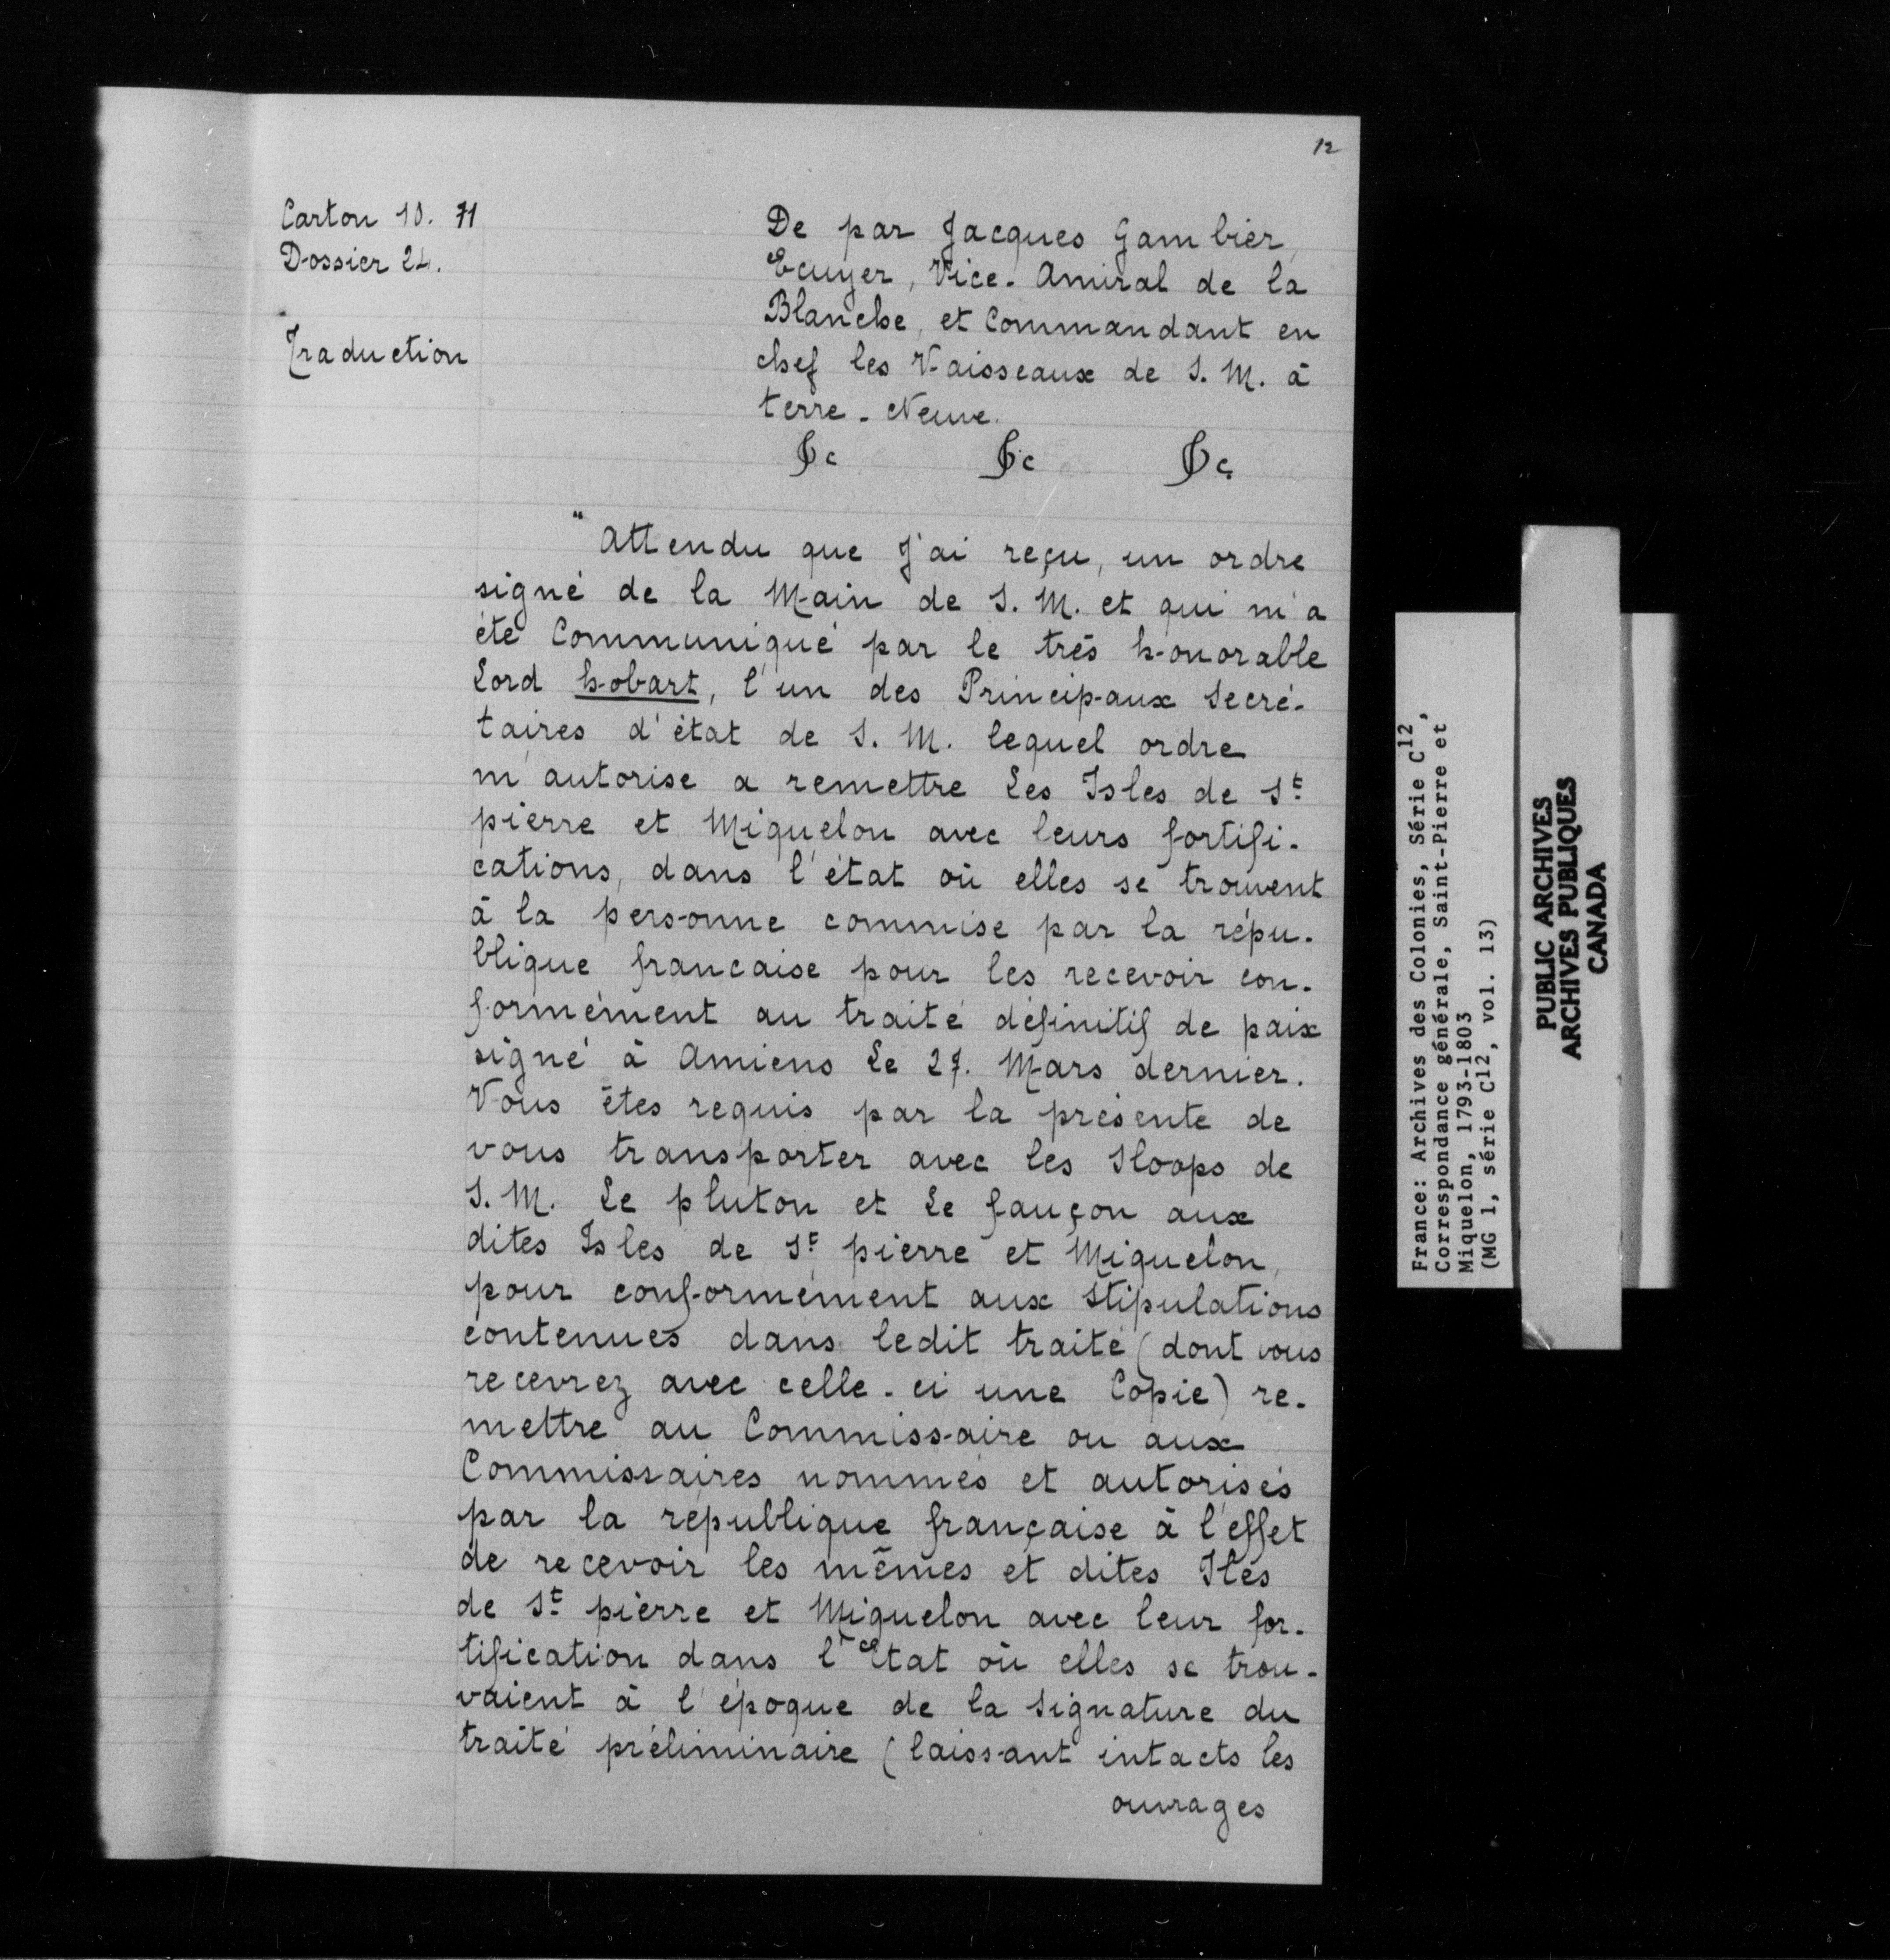 12
Carton 10. 71
Dossier 24.
Traduction
De par Jacques Gambier,
Ecuyer, Vice-Amiral de la
Blanche, et Commandant en
chef les Vaisseaux de S. M. à
terre-Neuve.
&c &c &c
"Attendu que J'ai reçu, un ordre
signé de la Main de S. M. et qui m'a
été Communiqué par le très honorable
Lord hobart, l'un des Principaux Secré-
taires d'état de S. M. lequel ordre
m'autorise a remettre Les Isles de St
pierre et Miquelon avec leurs fortifi-
cations, dans l'état où elles se trouvent
à la personne commise par la répu-
blique francaise pour les recevoir con-
formément au traité définitif de paix
signé à Amiens Le 27. Mars dernier.
Vous êtes requis par la présente de
vous transporter avec les Sloops de
S. M. Le pluton et Le fauçon aux
dites Isles de St pierre et Miquelon,
pour conformément aux Stipulations
contenues dans ledit traité (dont vous
recevrez avec celle-ci une Copie) re-
mettre au Commissaire ou aux
Commissaires nommés et autorisés
par la république française à l'effet
de recevoir les mêmes et dites Iles
de St pierre et Miquelon avec leur for-
tification dans l'Etat où elles se trou-
vaient à l'époque de la Signature du
traité préliminaire (laissant intacts les
ouvrages
France: Archives des Colonies, Série C12,
Correspondance générale, Saint-Pierre et
Miquelon, 1793-1803
(MG 1, série C12, vol. 13)
PUBLIC ARCHIVES
ARCHIVES PUBLIQUES
CANADA